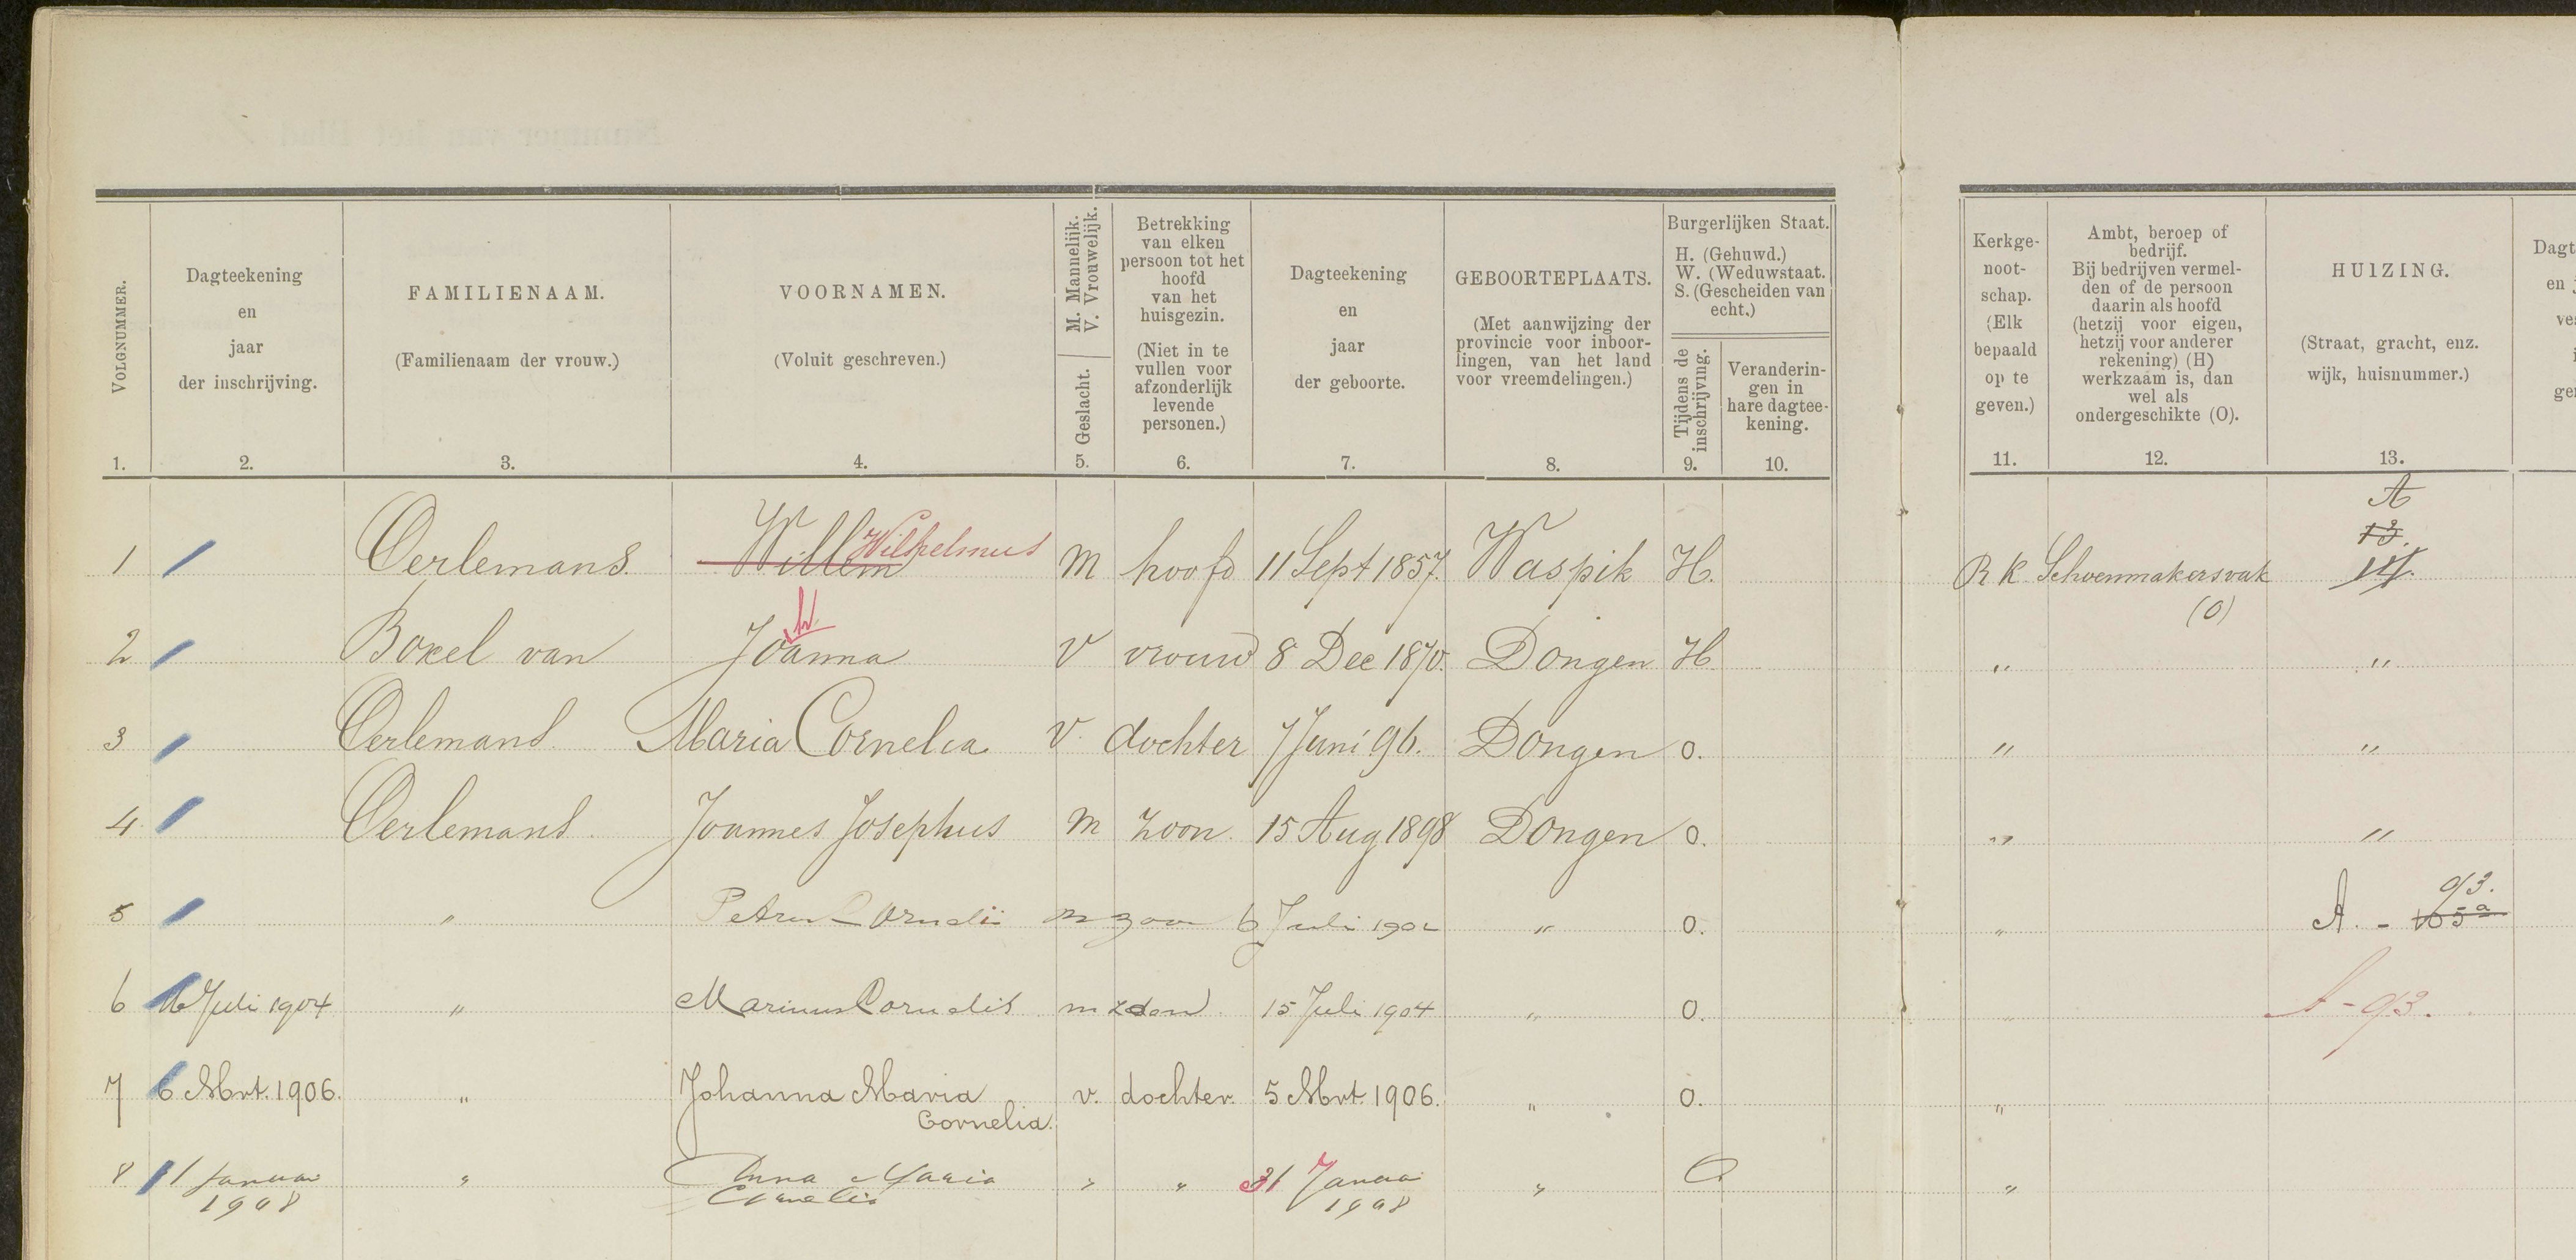 VOLGNUMMER.
1.
Dagteekening
en
jaar
der inschrijving.
2.
FAMILIENAAM.
(Familienaam der vrouw.)
3.
VOORNAMEN.
(Voluit geschreven.)
4.
M. Mannelijk.
V. Vrouwelijk.
Geslacht.
5.
Betrekking
van elken
persoon tot het
hoofd
van het
huisgezin.
(Niet in te
vullen voor
afzonderlijk
levende
personen.)
6.
Dagteekening
en
jaar
der geboorte.
7.
GEBOORTEPLAATS.
(Met aanwijzing der
provincie voor inboor-
lingen, van het land
voor vreemdelingen.)
8.
Burgerlijken Staat.
H. (Gehuwd.)
W. (Weduwstaat.
S. (Gescheiden van
echt.)
Tijdens de
inschrijving.
9.
Veranderin-
gen in
hare dagtee-
kening.
10.
Kerkge-
noot-
schap.
(Elk
bepaald
op te
geven.)
11.
Ambt, beroep of
bedrijf.
Bij bedrijven vermel-
den of de persoon
daarin als hoofd
(hetzij voor eigen,
hetzij voor anderer
rekening) (H)
werkzaam is, dan
wel als
ondergeschikte (O).
12.
HUIZING.
(Straat, gracht, enz.
wijk, huisnummer.)
13.
Dagt
en j
ve
i
ge
A
13.
1 Oerlemans. Willem Wilhelmus M hoofd 11 Sept 1857. Waspik H. R K Schoenmakersvak 14.
(O)
h
2 Boxel van Joanna V vrouw 8 Dec 1870. Dongen H " "
3 Oerlemans. Maria Cornelia V. dochter 7 Juni 96. Dongen O. " "
4. Oerlemans. Joannes Josephus M zoon. 15 Aug 1898 Dongen O. " "
93.
5 " Petrus Cornelis m zoon 6 Juli 1902 " O. " A. - 105a
6 16 Juli 1904 " Marinus Cornelis m zoon 15 Juli 1904 " O. " A - 93.
7 6 Mrt. 1906. " Johanna Maria v. dochter. 5 Mrt. 1906. " O. "
Cornelia.
8 1 Januari " Anna Maria " " 31 Januari " O "
1908 Cornelia 1908